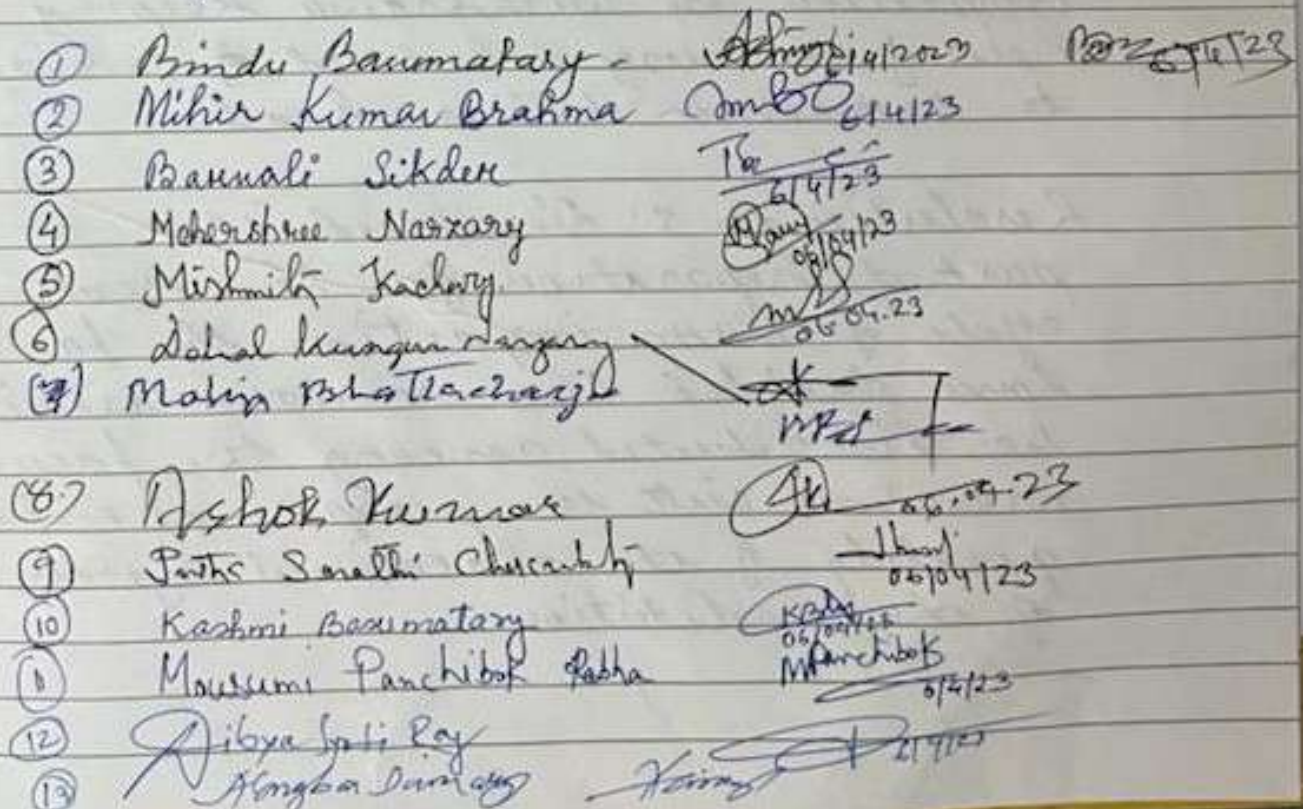 ① Bindu Basumatary - 6/4/2023 6/4/23
② Mihir Kumar Brahma 6/4/23
③ Barnali Sikder 6/4/23
④ Mehershree Narzary 06/04/23
⑤ Mishmita Kachary 06.04.23
⑥ Narzary
(7) Bhattacharjee
(8.) Ashok Kumar AK 06.04.23
⑨ Partha Sarathi 06/04/23
⑩ Rashmi Basumatary
⑪ Mousumi Panchibok Rabha MPanchibok 6/4/23
⑫ Dibya Jyoti Ray
⑬ Alongbar Daimary